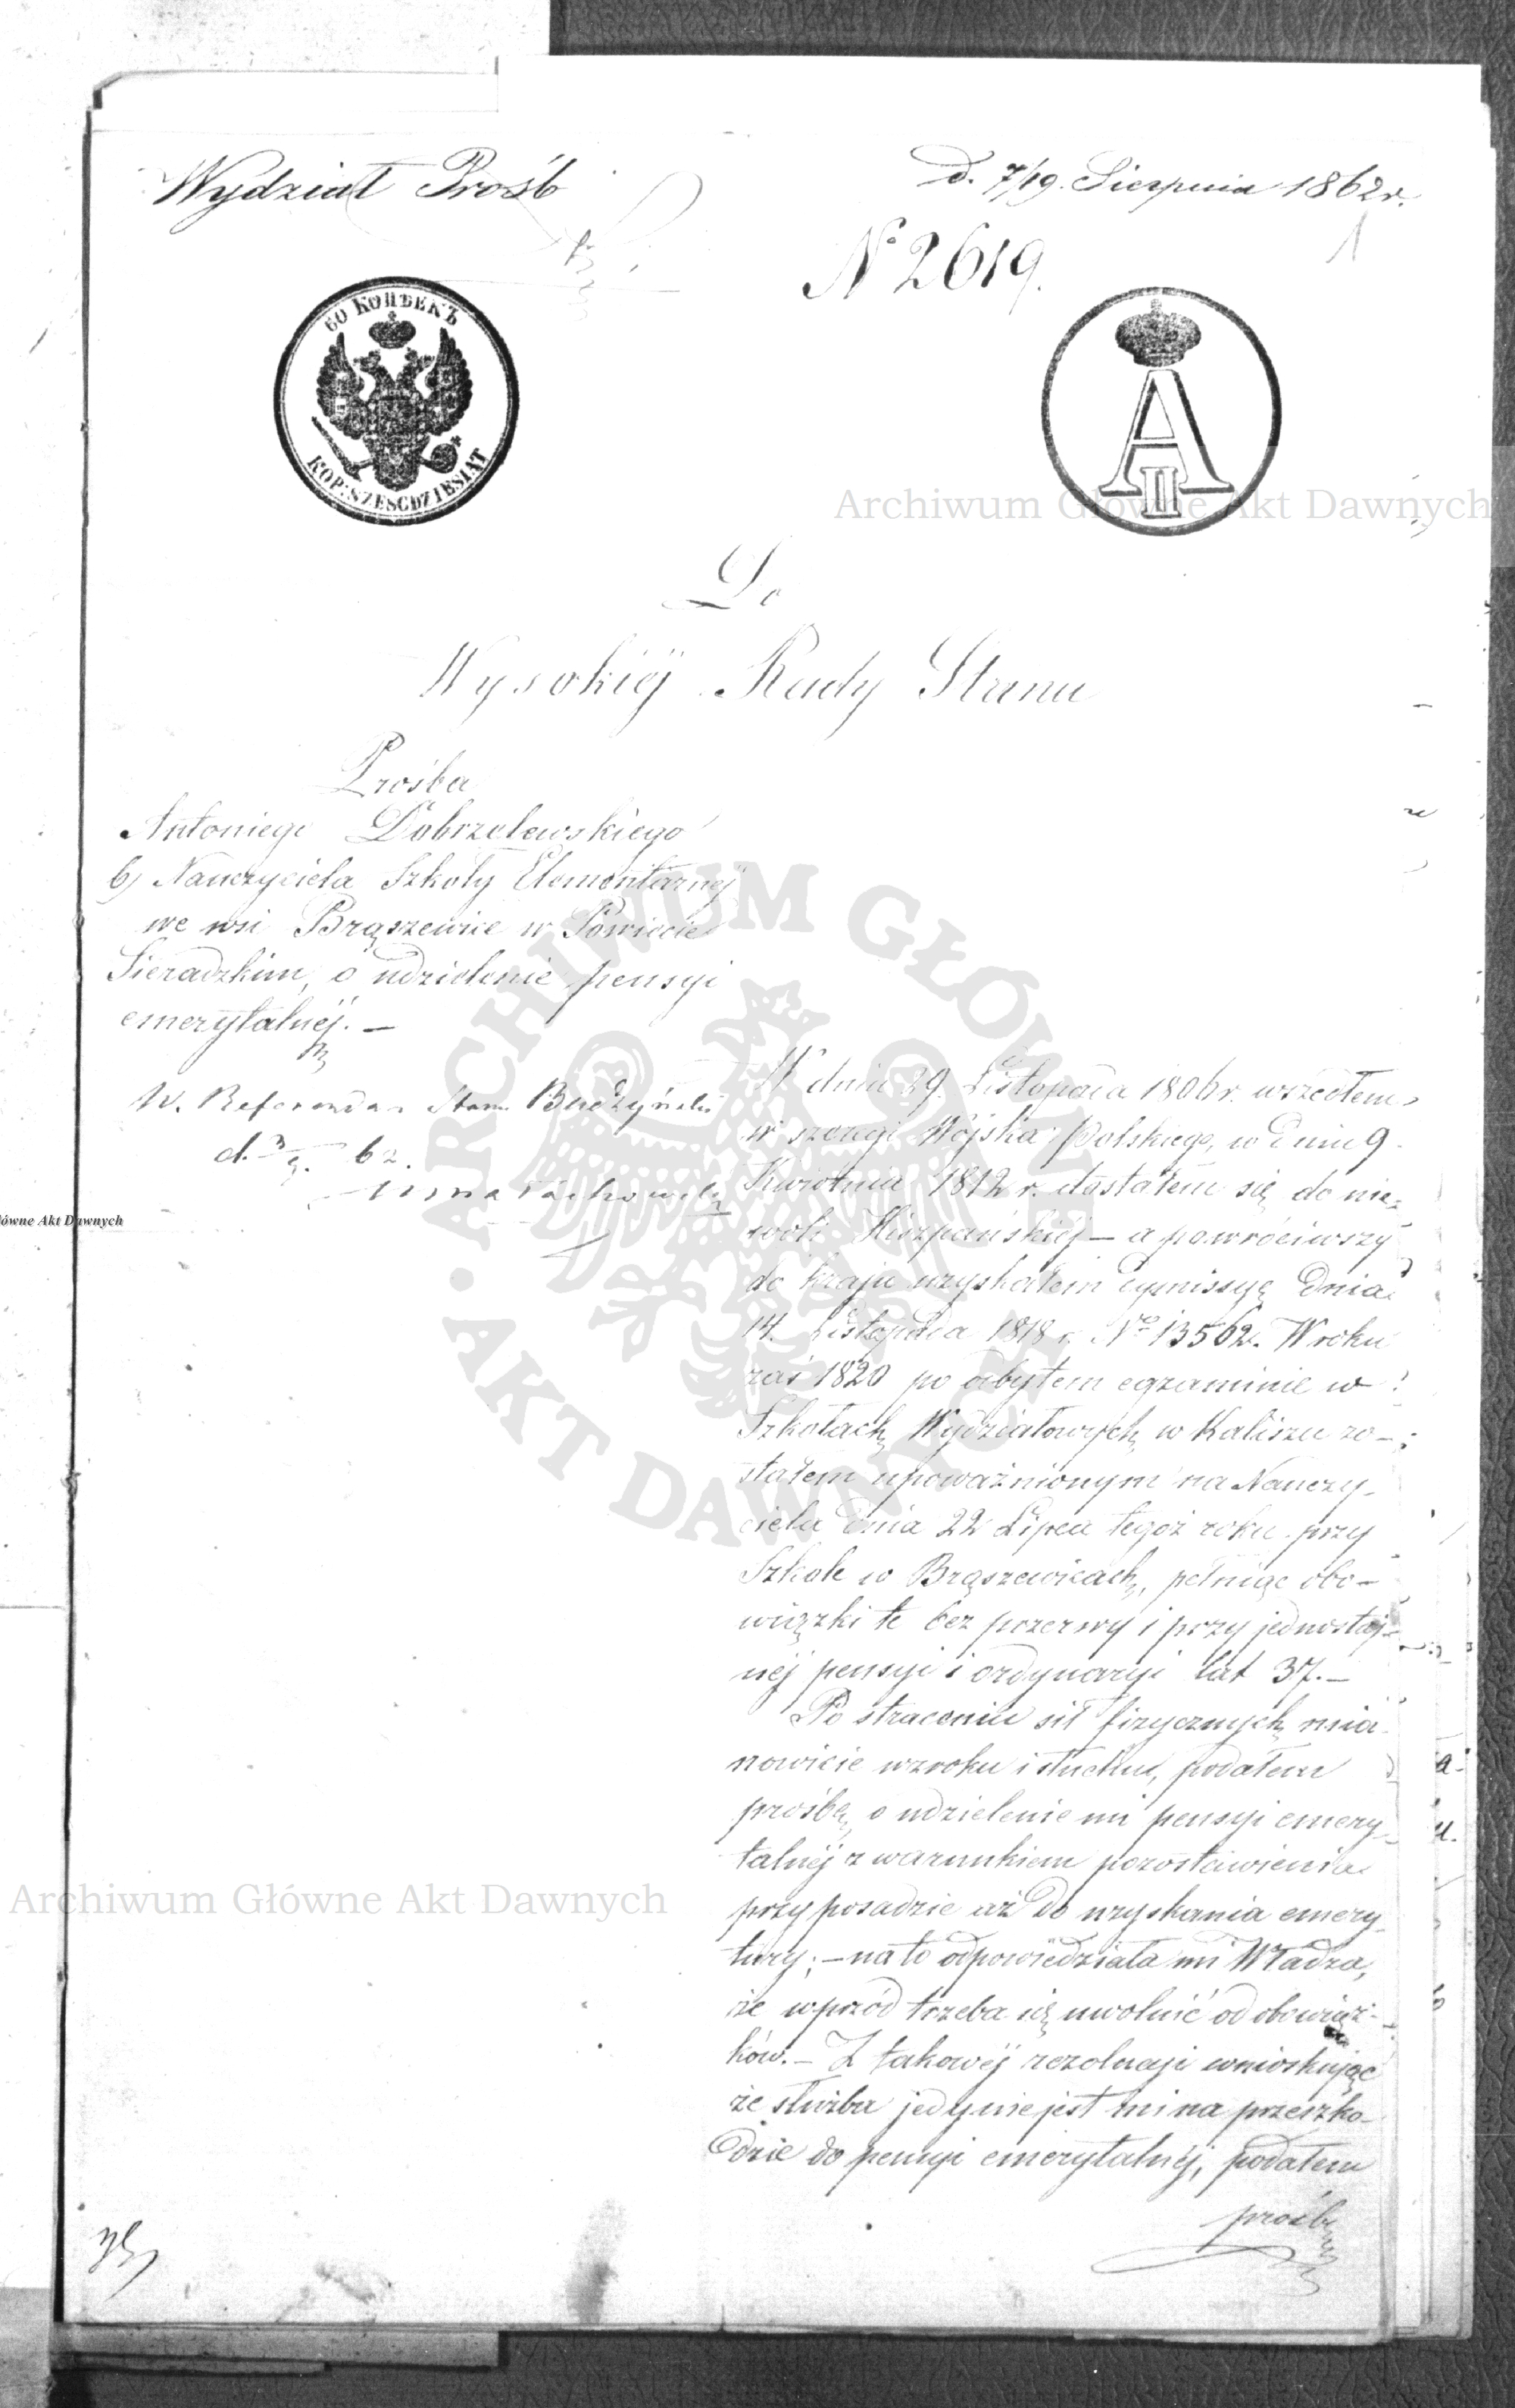 Wydział Prośb
D. 7/19. Sierpnia 1862 r.
1
N° 2619.
60 КОПѢЕКЪ
KOP: SZESĆDZIESIAT
A II
Do
Wysokiéj Rady Stanu
Prośba
Antoniego Dobrzelewskiego
b) Nauczyciela Szkoły Elementarnéj
we wsi Brąszewice w Powiecie
Sieradzkim, o udzielenie pensyi
emerytalnéj. —
W. Referendarz Stanu Budzyński
W dniu 29. Listopada 1806 r. wszedłem
w szeregi Wojska Polskiego, w dniu 9
Kwietnia 1812 r. dostałem się do nie-
woli Hiszpańskiéj — a powróciwszy
do kraju uzyskałem dymissyę dnia
14. Listopada 1818 r. N° 13562. W roku
zaś 1820 po odbytem egzaminie w
Szkołach Wydziałowych w Kaliszu zo-
stałem upoważnionym na Nauczy-
ciela dnia 22 Lipca tegoż roku przy
Szkole w Brąszewicach, pełniąc obo-
wiązki te bez przerwy i przy jednostaj-
néj pensyi i ordynaryi lat 37. —
Po straceniu sił fizycznych mia-
nowicie wzroku i słuchu, podałem
prośbę o udzielenie mi pensyi emery-
talnéj z warunkiem pozostawienia
przy posadzie aż do uzyskania emery-
tury; — na to odpowiedziała mi Władza,
że wprzód trzeba się uwolnić od obowiąz-
ków. — Z takowéj rezolucyi wnioskując
że służba jedynie jest mi na przeszko-
dzie do pensyi emerytalnéj, podałem
prośbę
Archiwum Główne Akt Dawnych
Archiwum Główne Akt Dawnych
ówne Akt Dawnych
ARCHIWUM GŁÓWNE AKT DAWNYCH